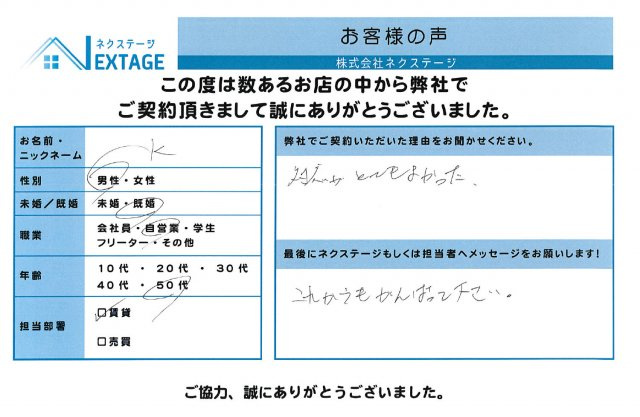 ネクステージ
NEXTAGE
お客様の声
株式会社ネクステージ
この度は数あるお店の中から弊社で
ご契約頂きまして誠にありがとうございました。
お名前・
ニックネーム
K
性別
男性・女性
未婚／既婚
未婚・既婚
職業
会社員・自営業・学生
フリーター・その他
年齢
10代 ・ 20代 ・ 30代
40代 ・ 50代
担当部署
□賃貸
□売買
弊社でご契約いただいた理由をお聞かせください。
対応がとてもよかった。
最後にネクステージもしくは担当者へメッセージをお願いします!
これからもがんばって下さい。
ご協力、誠にありがとうございました。